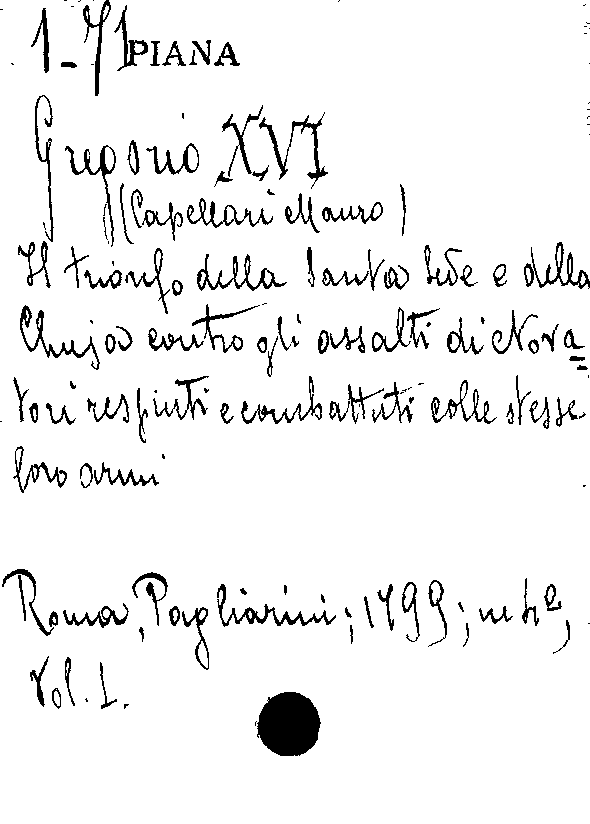 1-71 PIANA
Gregorio XVI
(Capellari Mauro)
Il trionfo della Santa Sede e della
Chiesa contro gli assalti di Nova=
tori respinti e combattuti colle stesse
loro armi
Roma, Pagliarini; 1799; in 4º,
Vol. 1.